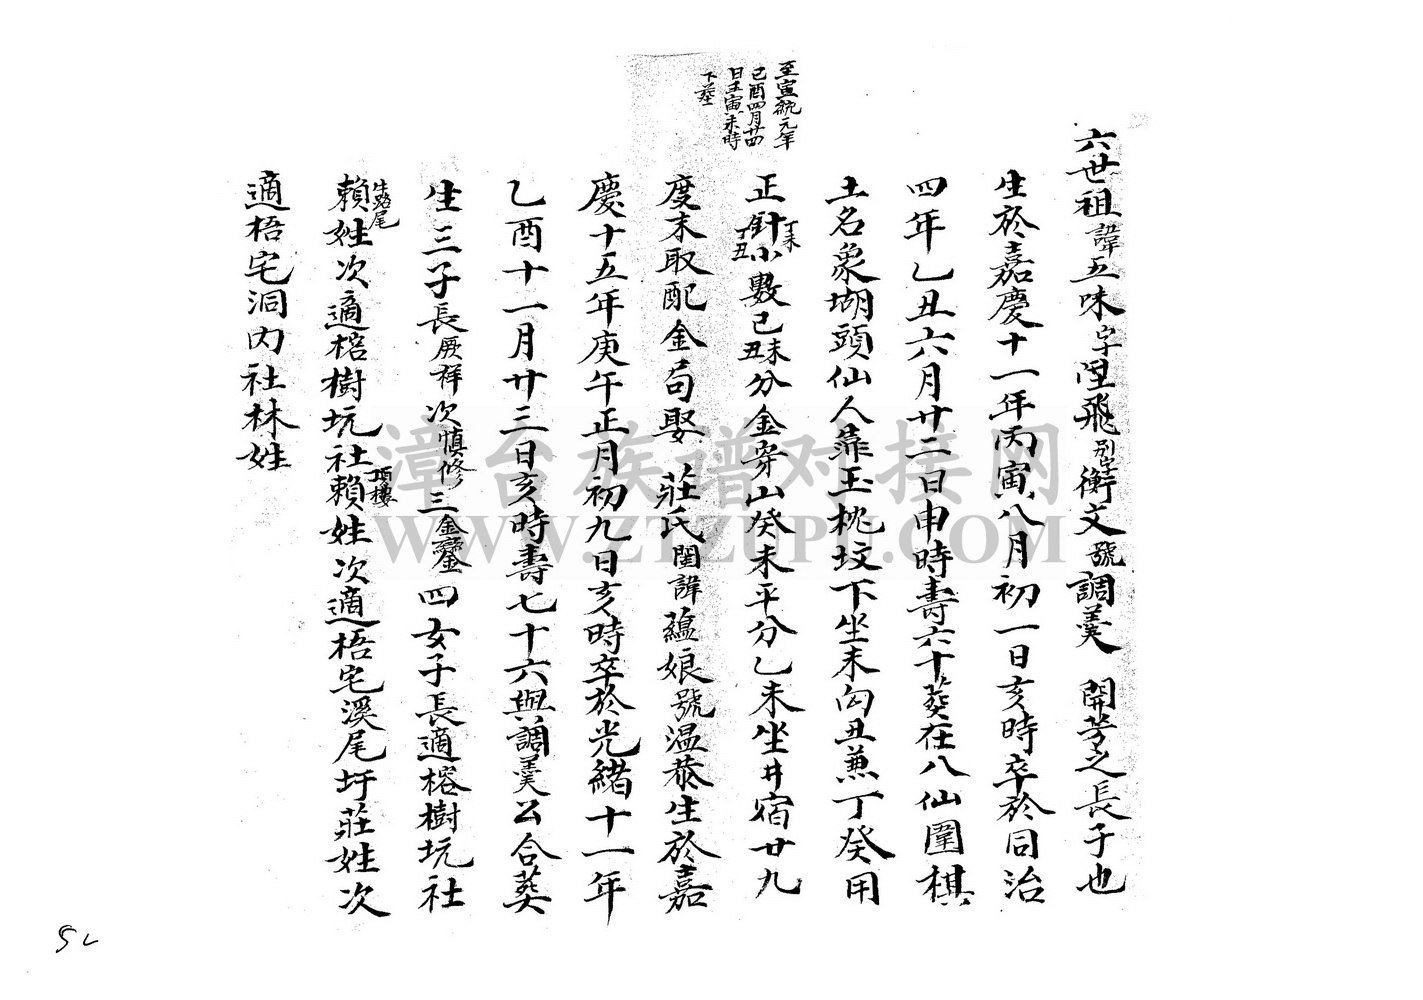 六世祖諱五味字陞飛别字衡文號調羹 開芳之長子也
生於嘉慶十一年丙寅八月初一日亥時卒於同治
四年乙丑六月廿二日申時壽六十葬在八仙圍棋
土名象湖頭仙人靠玉枕坟下坐未向丑兼丁癸用
至宣統元年
己酉四月廿四
日壬寅未時
下葬
正針丁未丁丑小數己未丑分金穿山癸未平分乙未坐井宿廿九
度末取配金局娶 莊氏閨諱蘊娘號温恭生於嘉
慶十五年庚午正月初九日亥時卒於光緒十一年
乙酉十一月廿三日亥時壽七十六與調羹公合葬
生三子長厥祥次慎修三金鑾四女子長適榕樹坑社
賴姓生路尾次適榕樹坑社賴姓頂樓次適梧宅溪尾圩莊姓次
適梧宅洞内社林姓
漳台族谱对接网
WWW.ZTZUPU.COM
52